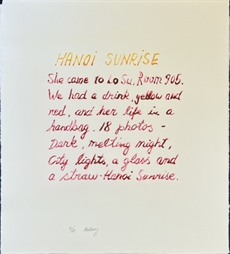 HANOI SUNRISE
She came to Lo Su. Room 905.
We had a drink, yellow and
red, and her life in a
handbag. 18 photos -
Dark, melting night,
City lights, a glass and
a straw - Hanoi Sunrise.